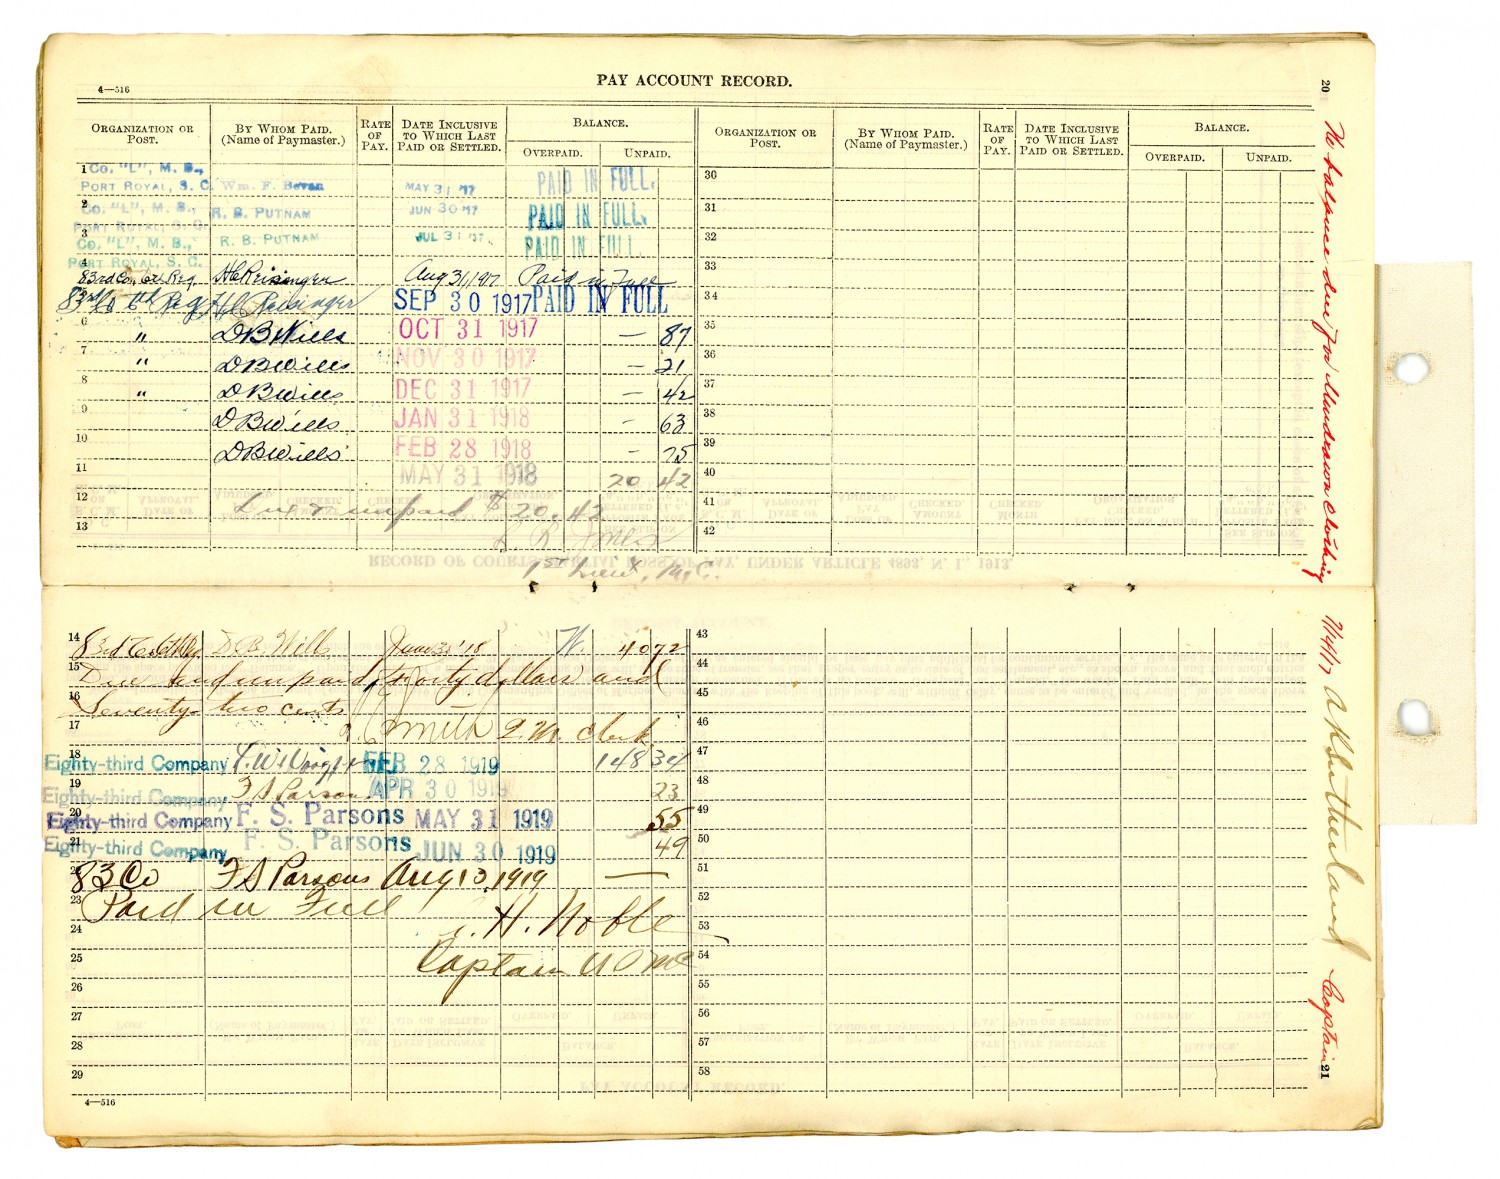 4—516
PAY ACCOUNT RECORD.
20
ORGANIZATION OR POST.
BY WHOM PAID. (Name of Paymaster.)
RATE OF PAY.
DATE INCLUSIVE TO WHICH LAST PAID OR SETTLED.
BALANCE.
OVERPAID.
UNPAID.
ORGANIZATION OR POST.
BY WHOM PAID. (Name of Paymaster.)
RATE OF PAY.
DATE INCLUSIVE TO WHICH LAST PAID OR SETTLED.
BALANCE.
OVERPAID.
UNPAID.
1 Co. "L", M. B., PORT ROYAL, S. C. Wm. F. Bevan MAY 31 '17 PAID IN FULL.
2 Co. "L", M. B., PORT ROYAL, S. C. R. B. PUTNAM JUN 30 '17 PAID IN FULL.
3 Co. "L", M. B., PORT ROYAL, S. C. R. B. PUTNAM JUL 31 '17 PAID IN FULL.
4 83rd Co., 6th Reg. H C Reisinger Aug 31, 1917 Paid in Full
83rd Co 6th Reg H C Reisinger SEP 30 1917 PAID IN FULL
6 " D B Wills OCT 31 1917 — 87
7 " D B Wills NOV 30 1917 — 21
8 " D B Wills DEC 31 1917 — 42
9 D B Wills JAN 31 1918 — 63
10 D B Wills FEB 28 1918 — 75
11 MAY 31 1918 20 42
12 Due & unpaid $20.42
13
1st Lieut, M.C.
30
31
32
33
34
35
36
37
38
39
40
41
42
RECORD OF COURTS-MARTIAL LOSS OF PAY, UNDER ARTICLE 4893, N. I., 1913.
14 83rd Co 6th Reg D B Wills June 30 '18 40 72
15 Due and unpaid, forty dollars and
16 Seventy-two cents
17 Smith Q. M. Clerk
18 Eighty-third Company FEB 28 1919 148 34
19 Eighty-third Company F S Parsons APR 30 1919 23
20 Eighty-third Company F. S. Parsons MAY 31 1919 55
21 Eighty-third Company F. S. Parsons JUN 30 1919 49
22 83 Co F S Parsons Aug 13, 1919 —
23 Paid in Full
24 H. Noble
25 Captain U S M C
26
27
28
29
4—516
43
44
45
46
47
48
49
50
51
52
53
54
55
56
57
58
PAY ACCOUNT RECORD.
No balance due for Undrawn Clothing
A B Sutherland
Captain
21